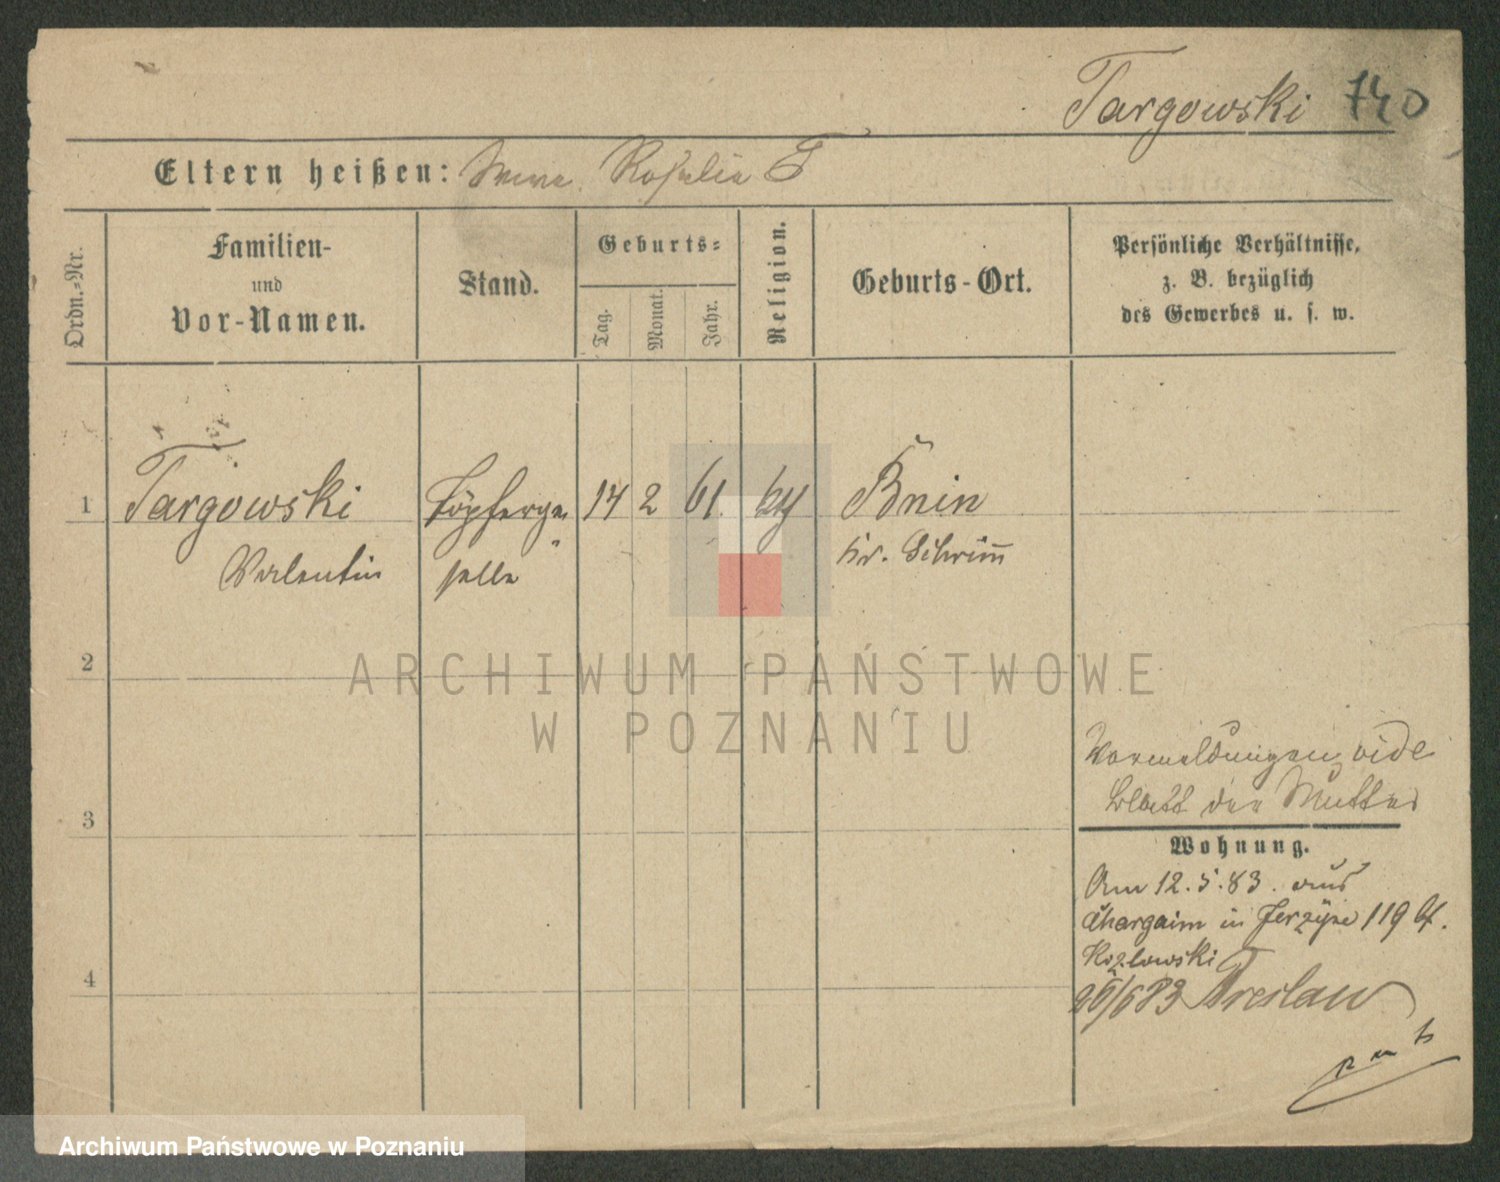 Targowski 740
Eltern heißen: Wwe. Rosalie T
Ordn.-Nr.
Familien-
und
Vor-Namen.
Stand.
Geburts-
Tag.
Monat.
Jahr.
Religion.
Geburts-Ort.
Persönliche Verhältnisse,
z. B. bezüglich
des Gewerbes u. s. w.
1 Targowski Töpferge- 14 2 61. Bnin
Valentin selle Kr. Schrim̅
2
3
4
Vormeldungen vide
Blatt der Mutter
Wohnung.
Am 12.5.83. aus
in Jerzyce 119 bei
Kozlowski
26/6 83 Breslau
ARCHIWUM PAŃSTWOWE
W POZNANIU
Archiwum Państwowe w Poznaniu